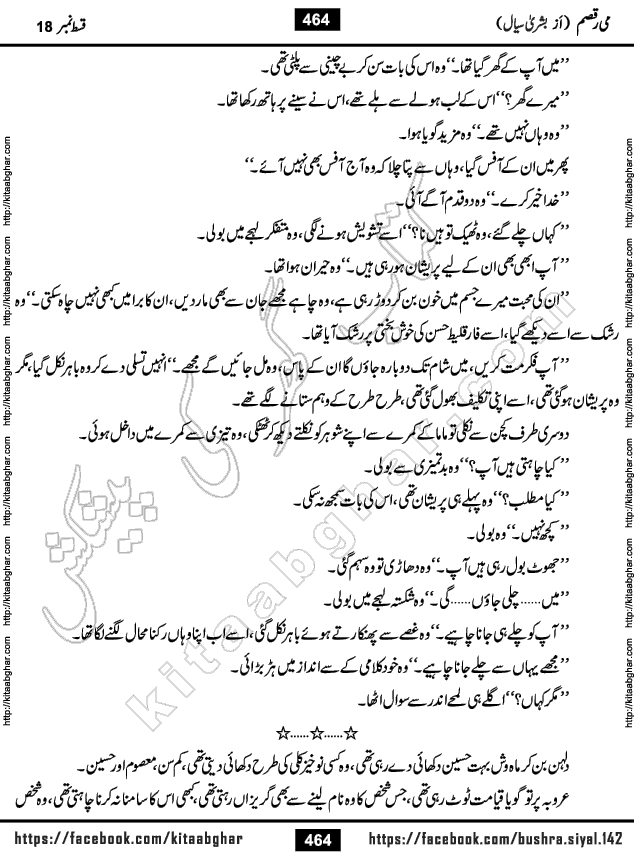 می رقصم (از بشریٰ سیال) 464 قسط نمبر 18
’’میں آپ کے گھر گیا تھا۔‘‘ وہ اس کی بات سن کر بے چینی سے پلٹی تھی۔
’’میرے گھر؟‘‘ اس کے لب ہولے سے ہلے تھے، اس نے سینے پر ہاتھ رکھا تھا۔
’’وہ وہاں نہیں تھے۔‘‘ وہ مزید گویا ہوا۔
پھر میں ان کے آفس گیا، وہاں سے پتا چلا کہ وہ آج آفس بھی نہیں آئے۔‘‘
’’خدا خیر کرے۔‘‘ وہ دو قدم آگے آئی۔
’’کہاں چلے گئے، وہ ٹھیک تو ہیں نا؟‘‘ اسے تشویش ہونے لگی، وہ متفکر لہجے میں بولی۔
’’آپ ابھی بھی ان کے لیے پریشان ہو رہی ہیں۔‘‘ وہ حیران ہوا تھا۔
’’ان کی محبت میرے جسم میں خون بن کر دوڑ رہی ہے، وہ چاہے مجھے جان سے بھی مار دیں، ان کا برا میں کبھی نہیں چاہ سکتی۔‘‘ وہ
رشک سے اسے دیکھے گیا، اسے فار قلیط حسن کی خوش بختی پر رشک آیا تھا۔
’’آپ فکر مت کریں، میں شام تک دوبارہ جاؤں گا ان کے پاس، وہ مل جائیں گے مجھے۔‘‘ انہیں تسلی دے کر وہ باہر نکل گیا، مگر
وہ پریشان ہو گئی تھی، اسے اپنی تکلیف بھول گئی تھی، طرح طرح کے وہم ستانے لگے تھے۔
دوسری طرف کچن سے نکلی تو ماما کے کمرے سے اپنے شوہر کو نکلتے دیکھ کر ٹھٹکی، وہ تیزی سے کمرے میں داخل ہوئی۔
’’کیا چاہتی ہیں آپ؟‘‘ وہ بدتمیزی سے بولی۔
’’کیا مطلب؟‘‘ وہ پہلے ہی پریشان تھی، اس کی بات سمجھ نہ سکی۔
’’کچھ نہیں۔‘‘ وہ بولی۔
’’جھوٹ بول رہی ہیں آپ۔‘‘ وہ دھاڑی تو وہ سہم گئی۔
’’میں...... چلی جاؤں...... گی۔‘‘ وہ شکستہ لہجے میں بولی۔
’’آپ کو چلے ہی جانا چاہیے۔‘‘ وہ غصے سے پھنکارتے ہوئے باہر نکل گئی، اسے اب اپنا وہاں رکنا محال لگنے لگا تھا۔
’’مجھے یہاں سے چلے جانا چاہیے۔‘‘ وہ خود کلامی کے سے انداز میں بڑبڑائی۔
’’مگر کہاں؟‘‘ اگلے ہی لمحے اندر سے سوال اٹھا۔
☆......☆......☆
دلہن بن کر ماہ وش بہت حسین دکھائی دے رہی تھی، وہ کسی نوخیز کلی کی طرح دکھائی دیتی تھی، کم سن، معصوم اور حسین۔
عروبہ پر تو گویا قیامت ٹوٹ رہی تھی، جس شخص کا وہ نام لینے سے بھی گریزاں رہتی تھی، کبھی اس کا سامنا نہ کرنا چاہتی تھی، وہ شخص
https://facebook.com/kitaabghar 464 https://facebook.com/bushra.siyal.142
http://kitaabghar.com http://kitaabghar.com http://kitaabghar.com http://kitaabghar.com http://kitaabghar.com http://kitaabghar.com
http://kitaabghar.com http://kitaabghar.com http://kitaabghar.com http://kitaabghar.com http://kitaabghar.com http://kitaabghar.com
کتاب گھر کی پیشکش
kitaabghar.com